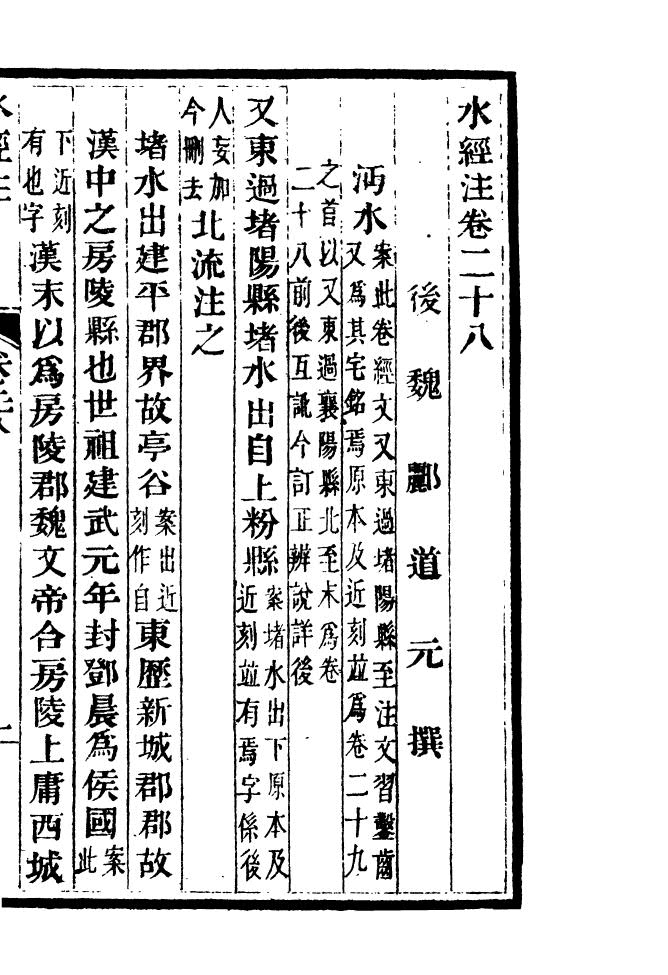 水經注卷二十八
後魏酈道元撰
沔水案此卷經文又東過堵陽縣至注文習鑿齒
又爲其宅銘焉原本及近刻竝爲卷二十九
之首以又東過襄陽縣北至末爲卷
二十八前後互訛今訂正辨說詳後
又東過堵陽縣堵水出自上粉縣案堵水出下原本及
近刻竝有焉字係後
人妄加
今刪去北流注之
堵水出建平郡界故亭谷案出近
刻作自東歷新城郡郡故
漢中之房陵縣也世祖建武元年封鄧晨爲侯國案
此
下近刻
有也字漢末以爲房陵郡魏文帝合房陵上庸西城
水經注
卷二十八
一